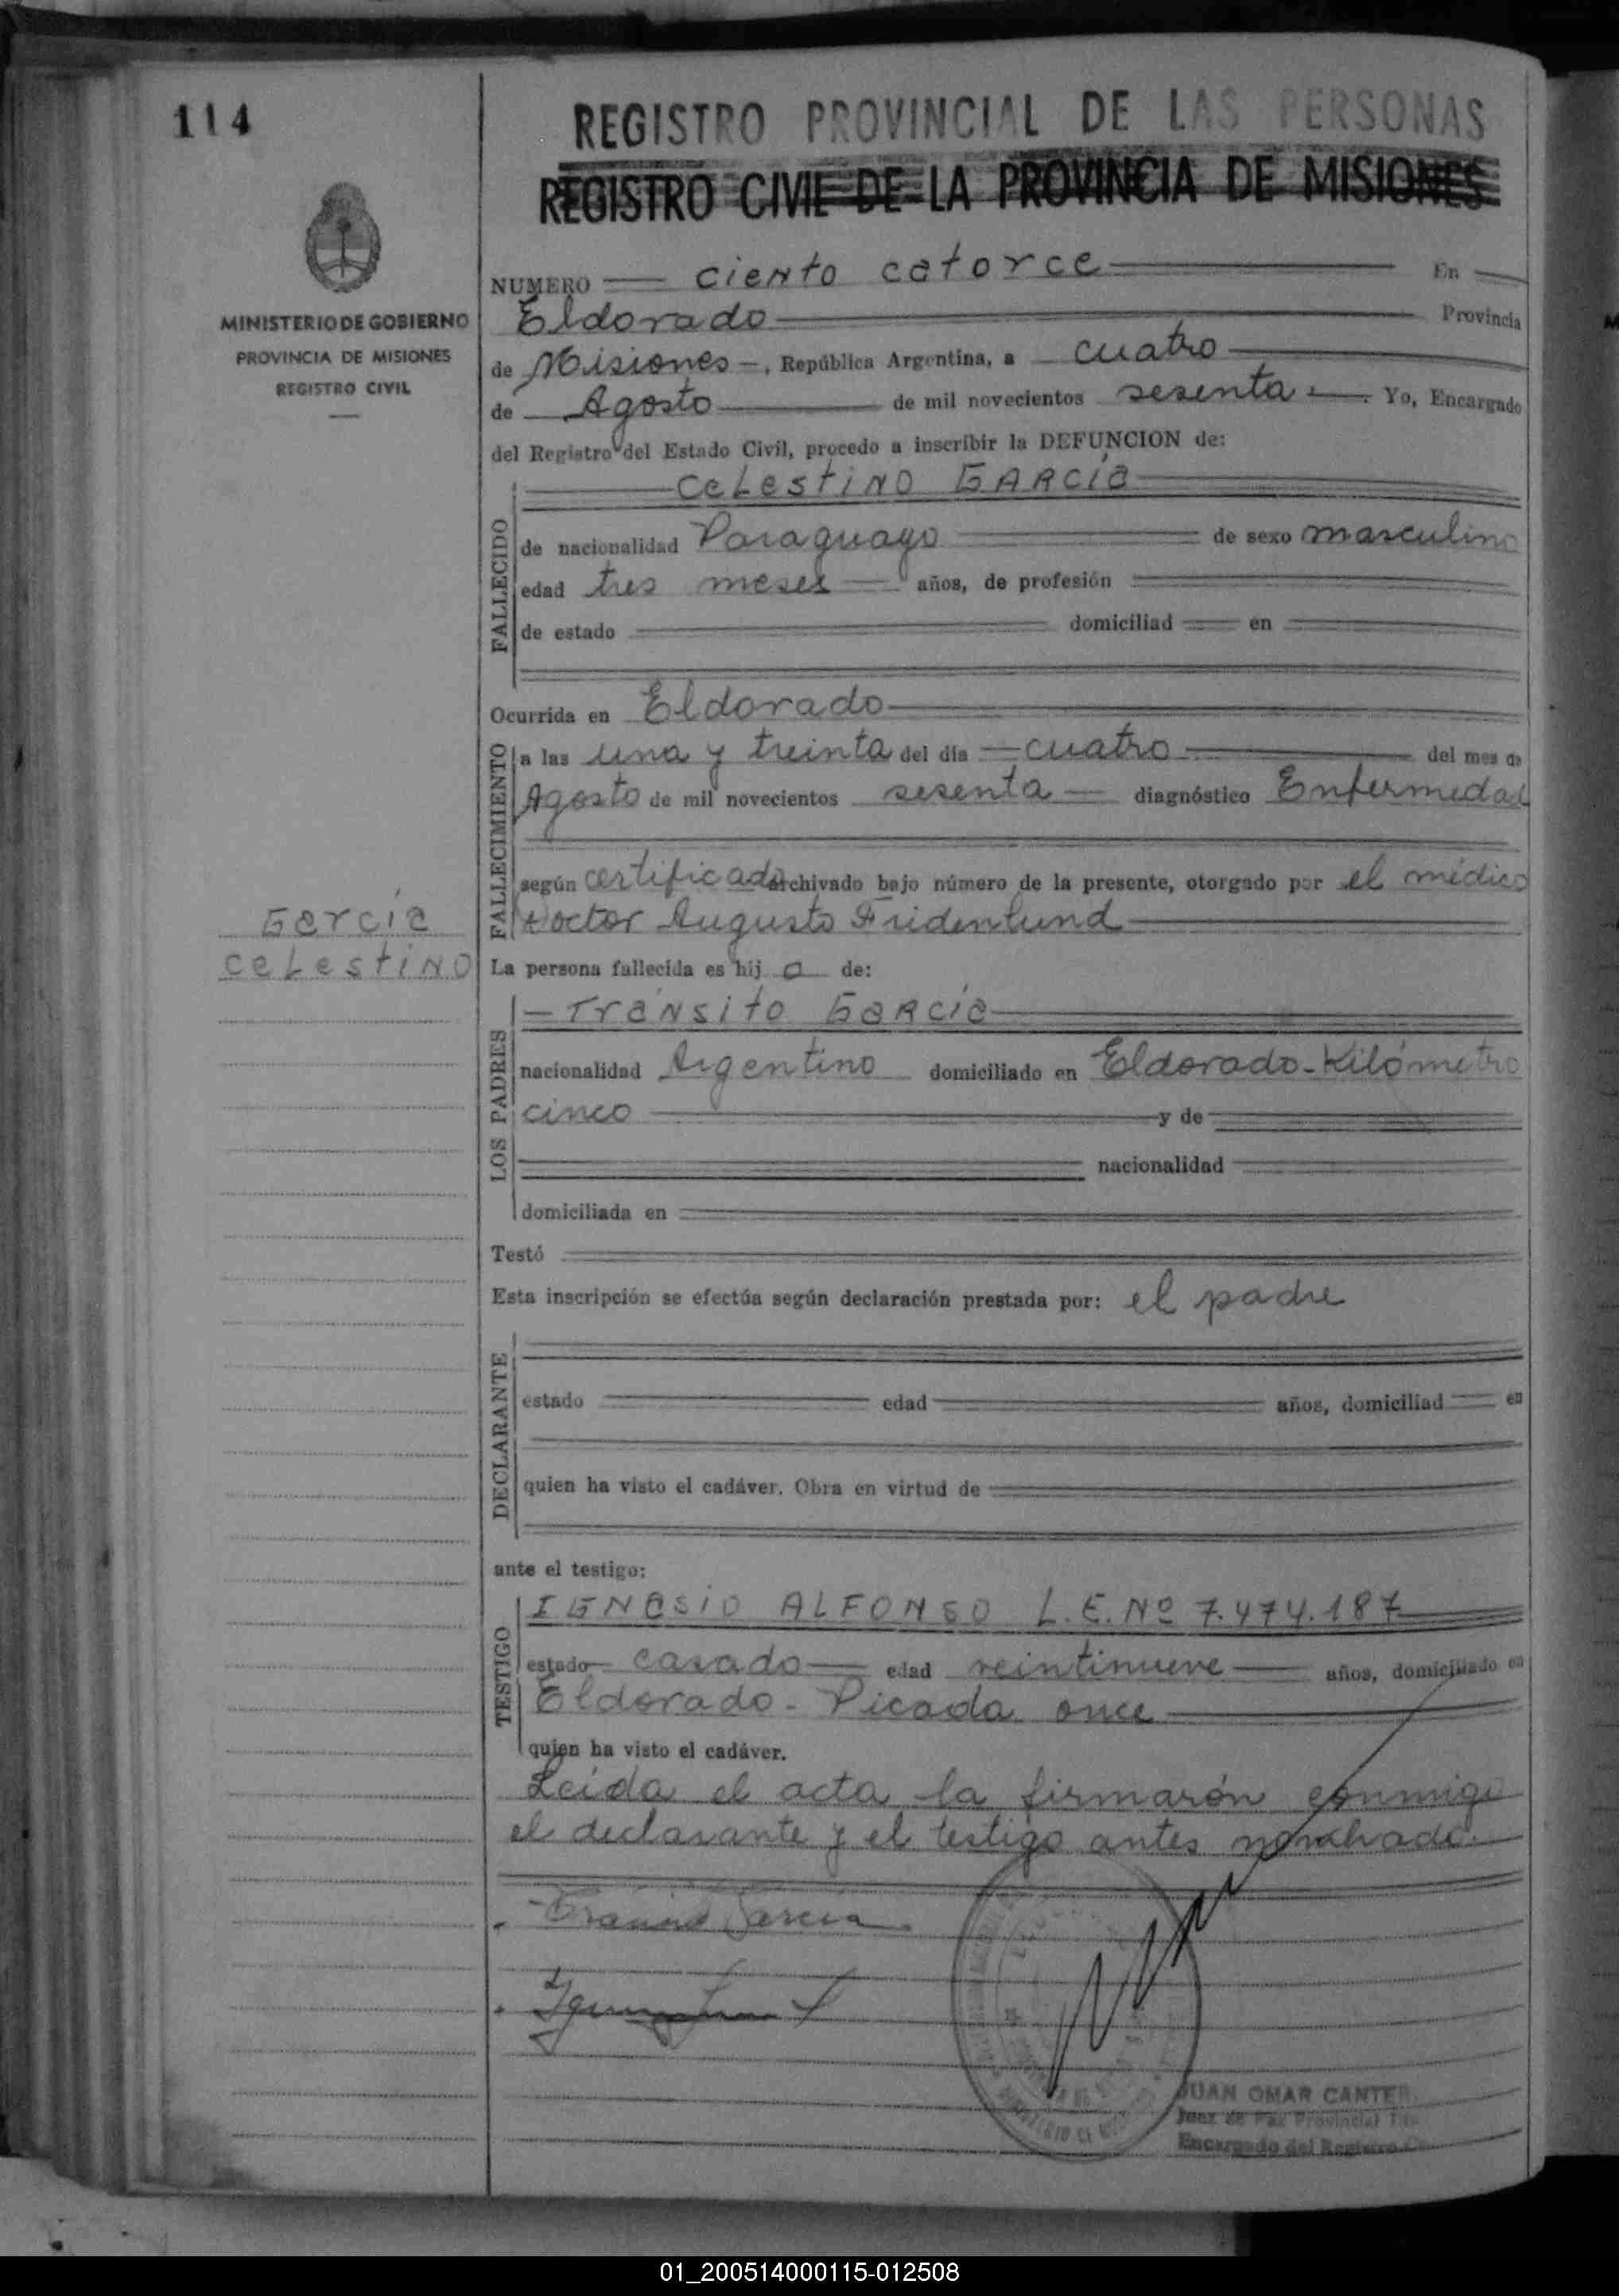 114
REGISTRO PROVINCIAL DE LAS PERSONAS
REGISTRO CIVIL DE LA PROVINCIA DE MISIONES
MINISTERIO DE GOBIERNO
PROVINCIA DE MISIONES
REGISTRO CIVIL
NUMERO ciento catorce En
Eldorado Provincia
de Misiones, República Argentina, a cuatro
de Agosto de mil novecientos sesenta. Yo, Encargado
del Registro del Estado Civil, procedo a inscribir la DEFUNCION de:
Celestino García
FALLECIDO
de nacionalidad Paraguayo de sexo masculino
edad tres meses años, de profesión
de estado domiciliad en
Ocurrida en Eldorado
FALLECIMIENTO
a las una y treinta del día cuatro del mes de
Agosto de mil novecientos sesenta diagnóstico Enfermedad
según certificado archivado bajo número de la presente, otorgado por el médico
Doctor Augusto Fridenlund
García
Celestino
La persona fallecida es hij o de:
LOS PADRES
Tránsito García
nacionalidad Argentino domiciliado en Eldorado-Kilómetro
cinco y de
nacionalidad
domiciliada en
Testó
Esta inscripción se efectúa según declaración prestada por: el padre
DECLARANTE
estado edad años, domiciliad en
quien ha visto el cadáver. Obra en virtud de
ante el testigo:
TESTIGO
IGNASIO ALFONSO L.E. Nº 7.474.187
estado casado edad veintinueve años, domiciliado en
Eldorado - Picada once
quien ha visto el cadáver.
Leída el acta la firmarón conmigo
el declarante y el testigo antes nombrado.
Tránsito García
JUAN OMAR CANTER
Juez de Paz Provincial
Encargado del Registro
01_200514000115-012508